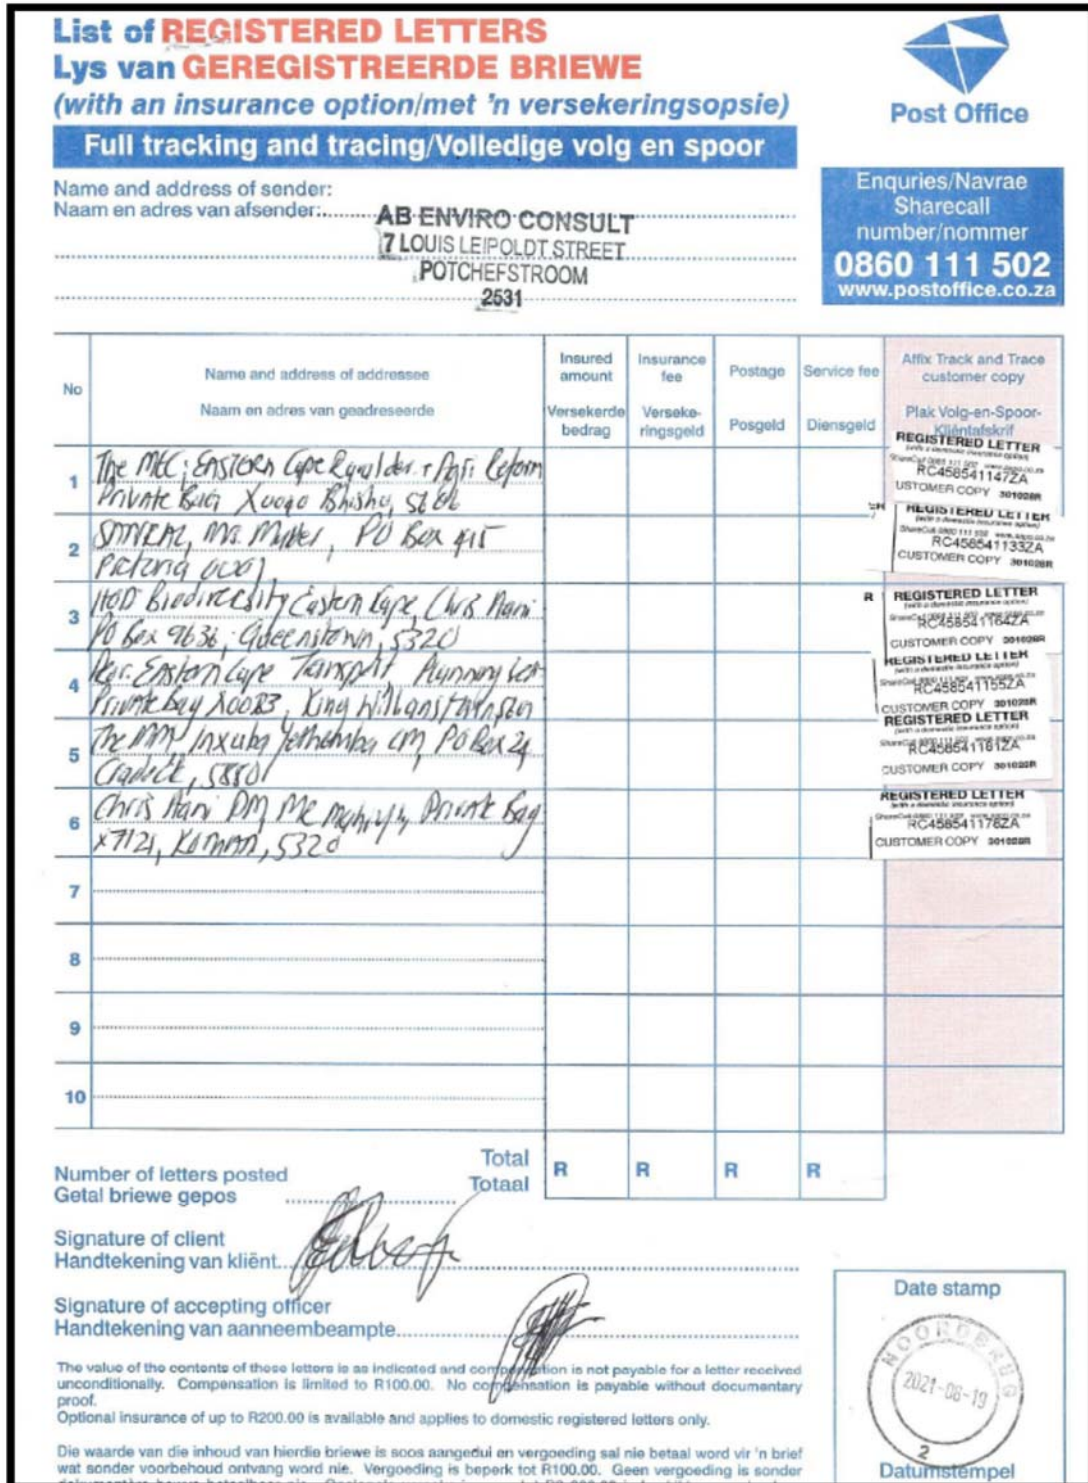 List of REGISTERED LETTERS
Lys van GEREGISTREERDE BRIEWE
(with an insurance option/met 'n versekeringsopsie)
Full tracking and tracing/Volledige volg en spoor
Post Office
Enquries/Navrae
Sharecall
number/nommer
0860 111 502
www.postoffice.co.za
Name and address of sender:
Naam en adres van afsender:
AB ENVIRO CONSULT
7 LOUIS LEIPOLDT STREET
POTCHEFSTROOM
2531
No
Name and address of addressee
Naam en adres van geadresseerde
Insured amount
Versekerde bedrag
Insurance fee
Verseke-ringsgeld
Postage
Posgeld
Service fee
Diensgeld
Affix Track and Trace customer copy
Plak Volg-en-Spoor-Kliëntafskrif
1
The MEC: Eastern Cape Agri Reform
Private Bag Bhisho,
REGISTERED LETTER
RC458541147ZA
USTOMER COPY 301028R
2
SANRAL, Ms. PO Box 415
Pretoria 0001
REGISTERED LETTER
RC458541133ZA
CUSTOMER COPY 301028R
3
HOD Biodiversity Eastern Cape, Chris Hani
PO Box 9636, Queenstown, 5320
R
REGISTERED LETTER
RC458541164ZA
CUSTOMER COPY 301028R
4
Eastern Cape Transport, Planning
Private Bag X0023, King Williams
REGISTERED LETTER
RC458541155ZA
CUSTOMER COPY 301028R
5
The MM, Inxuba Yethemba LM, PO Box 24
Cradock, 5880
REGISTERED LETTER
RC458541181ZA
CUSTOMER COPY 301028R
6
Chris Hani DM, Private Bag
X7121, Komani, 5320
REGISTERED LETTER
RC458541178ZA
CUSTOMER COPY 301028R
7
8
9
10
Number of letters posted
Getal briewe gepos
Total
Totaal
R
R
R
R
Signature of client
Handtekening van kliënt
Signature of accepting officer
Handtekening van aanneembeampte
The value of the contents of these letters is as indicated and compensation is not payable for a letter received
unconditionally. Compensation is limited to R100.00. No compensation is payable without documentary
proof.
Optional insurance of up to R200.00 is available and applies to domestic registered letters only.
Die waarde van die inhoud van hierdie briewe is soos aangedui en vergoeding sal nie betaal word vir 'n brief
wat sonder voorbehoud ontvang word nie. Vergoeding is beperk tot R100.00. Geen vergoeding is sonder
Date stamp
NOORDBRUG
2021-08-19
2
Datumstempel